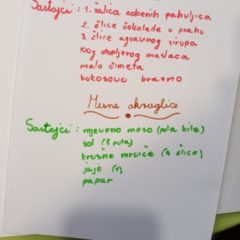 Sastojci : 1. šalica zobenih pahuljica
2. žlice čokolade u prahu
3. žlice agavinog sirupa
100g otopljenog maslaca
malo cimeta
kokosovo brašno
Mesne okruglice
Sastojci : mljeveno meso (pola kile)
sol
krušne mrvice (4 žlice)
jaje (1)
papar